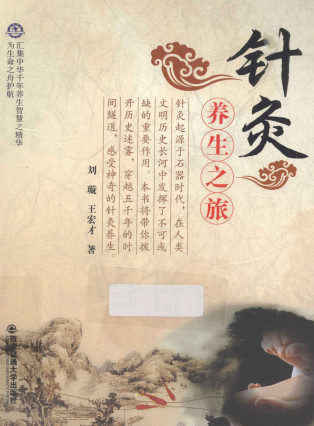 针灸
养生之旅
汇集中华千年养生智慧之精华
为生命之舟护航
针灸起源于石器时代，在人类
文明历史长河中发挥了不可或
缺的重要作用。本书将带你拨
开历史迷雾，穿越五千年的时
间隧道，感受神奇的针灸养生。
刘璇 王宏才 著
西安交通大学出版社